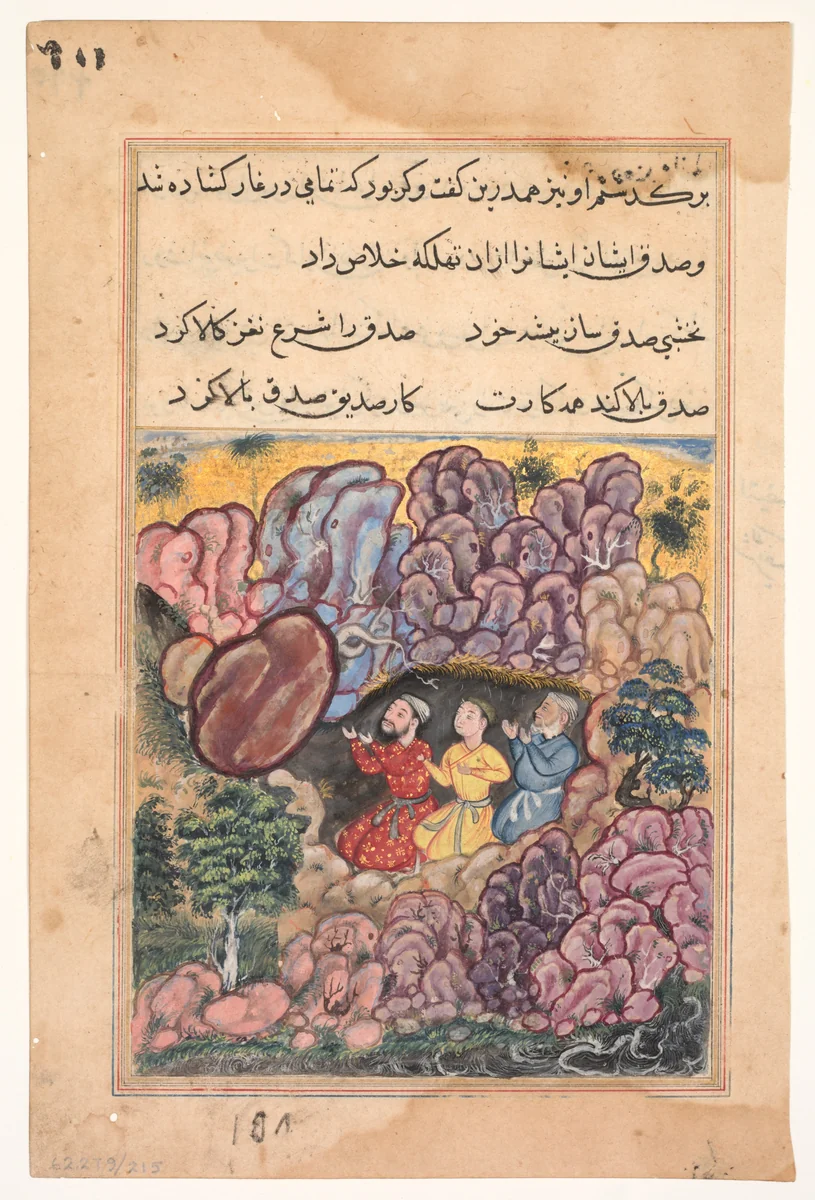 برگذشتم او نیز همدرین گفت و کو بود که تمامی در غار کشاده شد
و صدق ایشان ایشانرا ازان تهلکه خلاص داد
نخشبی صدق سان پیشه خود صدق را شرع نغز کالا کرد
صدق بالا کند همه کارت کار صدیق صدق بالا کرد
۱۵۸
62.279/215